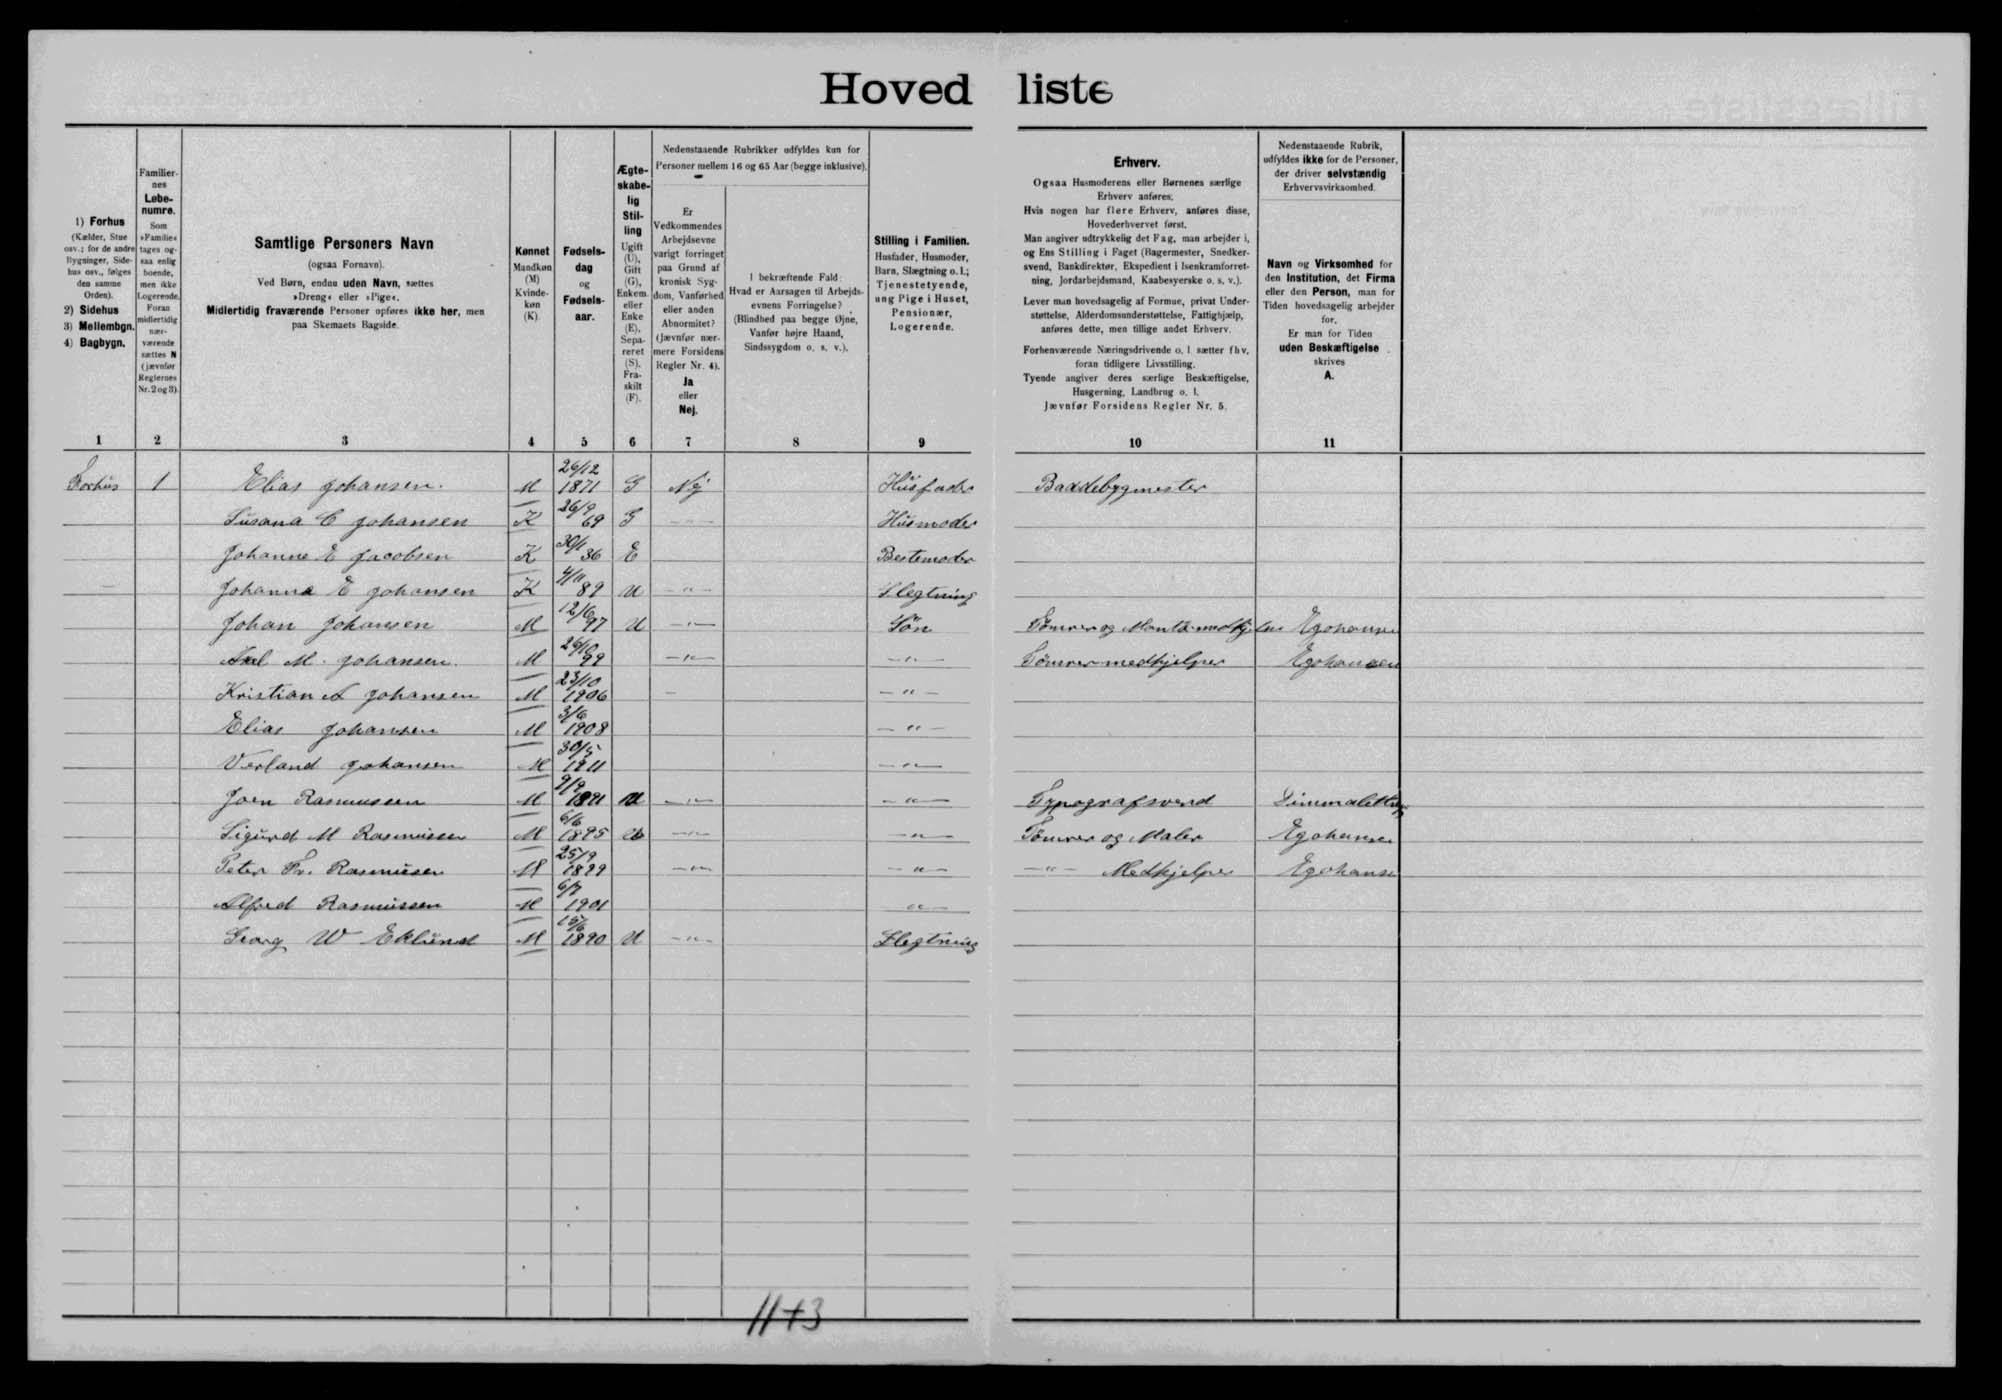 Hovedliste
1) Forhus
(Kælder, Stue
osv.; for de andre
Bygninger, Side-
hus osv., følges
den samme
Orden).
2) Sidehus
3) Mellembgn.
4) Bagbygn.
Familier-
nes
Løbe-
numre.
Som
»Familie«
tages og-
saa enlig
boende,
men ikke
Logerende.
Foran
midlertidig
nær-
værende
sættes N
(jævnfør
Reglernes
Nr. 2 og 3).
Samtlige Personers Navn
(ogsaa Fornavn).
Ved Børn, endnu uden Navn, sættes
»Dreng« eller »Pige«.
Midlertidig fraværende Personer opføres ikke her, men
paa Skemaets Bagside.
Kønnet
Mandkøn
(M)
Kvinde-
køn
(K).
Fødsels-
dag
og
Fødsels-
aar.
Ægte-
skabe-
lig
Stil-
ling
Ugift
(U),
Gift
(G),
Enkem.
eller
Enke
(E),
Sepa-
reret
(S),
Fra-
skilt
(F).
Nedenstaaende Rubrikker udfyldes kun for
Personer mellem 16 og 65 Aar (begge inklusive).
Er
Vedkommendes
Arbejdsevne
varigt forringet
paa Grund af
kronisk Syg-
dom, Vanførhed
eller anden
Abnormitet?
(Jævnfør nær-
mere Forsidens
Regler Nr. 4).
Ja
eller
Nej.
I bekræftende Fald:
Hvad er Aarsagen til Arbejds-
evnens Forringelse?
(Blindhed paa begge Øjne,
Vanfør højre Haand,
Sindssygdom o. s. v.).
Stilling i Familien.
Husfader, Husmoder,
Barn, Slægtning o. l.;
Tjenestetyende,
ung Pige i Huset,
Pensionær,
Logerende.
Erhverv.
Ogsaa Husmoderens eller Børnenes særlige
Erhverv anføres;
Hvis nogen har flere Erhverv, anføres disse,
Hovederhvervet først.
Man angiver udtrykkelig det Fag, man arbejder i,
og Ens Stilling i Faget (Bagermester, Snedker-
svend, Bankdirektør, Ekspedient i Isenkramforret-
ning, Jordarbejdsmand, Kaabesyerske o. s. v.).
Lever man hovedsagelig af Formue, privat Under-
støttelse, Alderdomsunderstøttelse, Fattighjælp,
anføres dette, men tillige andet Erhverv.
Forhenværende Næringsdrivende o. l. sætter fhv,
foran tidligere Livsstilling.
Tyende angiver deres særlige Beskæftigelse,
Husgerning, Landbrug o. l.
Jævnfør Forsidens Regler Nr. 5.
Nedenstaaende Rubrik,
udfyldes ikke for de Personer,
der driver selvstændig
Erhvervsvirksomhed.
Navn og Virksomhed for
den Institution, det Firma
eller den Person, man for
Tiden hovedsagelig arbejder
for.
Er man for Tiden
uden Beskæftigelse
skrives
A.
1 2 3 4 5 6 7 8 9 10 11
Forhus 1 Elias Johansen. M 26/12 1871 G Nej Husfader Baadebygmester
Susana C Johansen K 26/9 69 G -"- Husmoder
Johanne E Jacobsen K 30/1 36 E Bestemoder
Johanna E Johansen K 4/11 89 U -"- Slegtning
Johan Johansen M 12/6 97 U -"- Søn EJohansen
M. Johansen. M 26/10 99 -"- -"- Tømrermedhjelper EJohansen
Kristian A Johansen M 23/10 1906 - -"-
Elias Johansen M 3/6 1908 -"-
Verland Johansen M 30/5 1911 -"-
Joen Rasmussen M 9/9 1891 U -"- -"- Typografsvend Dimmalætting
Sigurd M Rasmussen M 6/6 1895 -"- -"- Tømrer og Maler EJohansen
Peter Fr. Rasmussen M 25/9 1899 -"- -"- -"- Medhjelper EJohanse
Alfred Rasmussen M 6/7 1901 -"-
Georg W Eklund M 15/6 1890 U -"- Slegtning
11+3